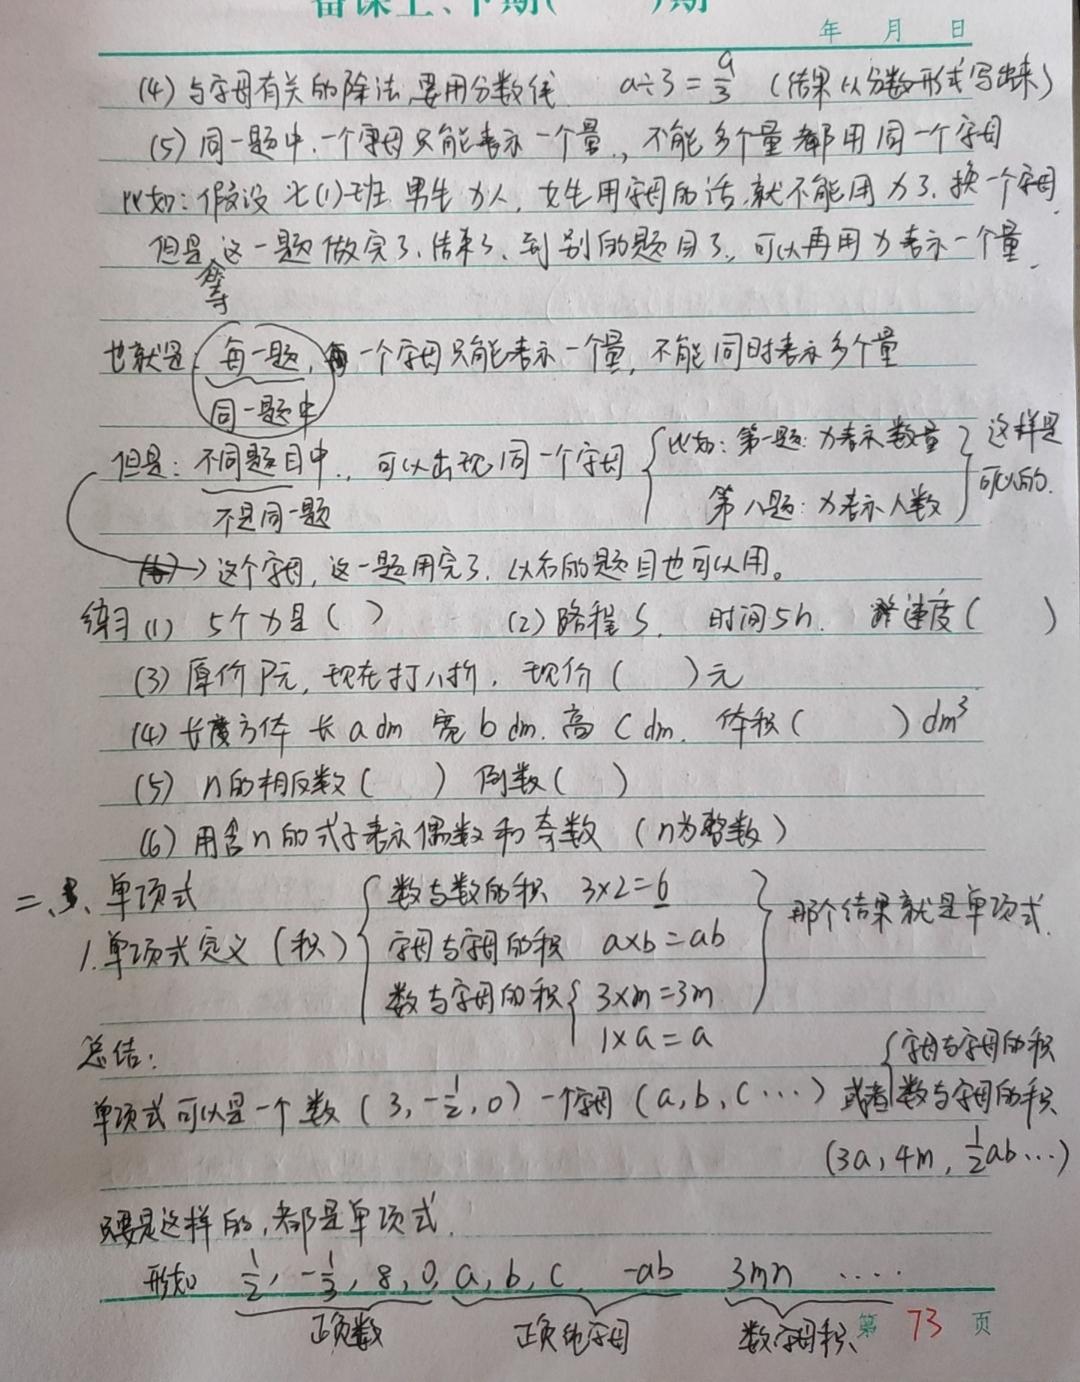 备课上、下期( )期
年 月 日
(4) 与字母有关的除法要用分数线 a÷3=a/3 (结果以分数形式写出来)
(5) 同一题中,一个字母只能表示一个量,不能多个量都用同一个字母
比如:假设七(1)班男生x人,女生用字母的话,就不能用x了,换一个字母,
但是,这一题做完了,结束了,到别的题目了,可以再用x表示一个量.
等
也就是:每一题,一个字母只能表示一个量,不能同时表示多个量
同一题中
但是:不同题目中,可以出现同一个字母 { 比如:第一题:x表示数量 第八题:x表示人数 } 这样是可以的.
不是同一题
→这个字母,这一题用完了,以后的题目也可以用。
练习(1) 5个x是( ) (2) 路程S,时间5h,速度( )
(3) 原价P元,现在打八折,现价( )元
(4) 长方体 长a dm 宽b dm.高c dm.体积( )dm³
(5) n的相反数( ) 倒数( )
(6) 用含n的式子表示偶数和奇数 (n为整数)
二、单项式
1.单项式定义(积) { 数与数的积 3×2=6
字母与字母的积 a×b=ab
数与字母的积 { 3×m=3m
1×a=a
} 那个结果就是单项式.
总结:
单项式可以是一个数(3,-1/2,0)一个字母(a,b,c…)或者 { 字母与字母的积
数与字母的积
(3a,4m,1/2ab…)
只要是这样的,都是单项式.
形如 1/2,-1/3,8,0,a,b,c -ab 3mn ····
正负数 正负纯字母 数字母积
第 73 页